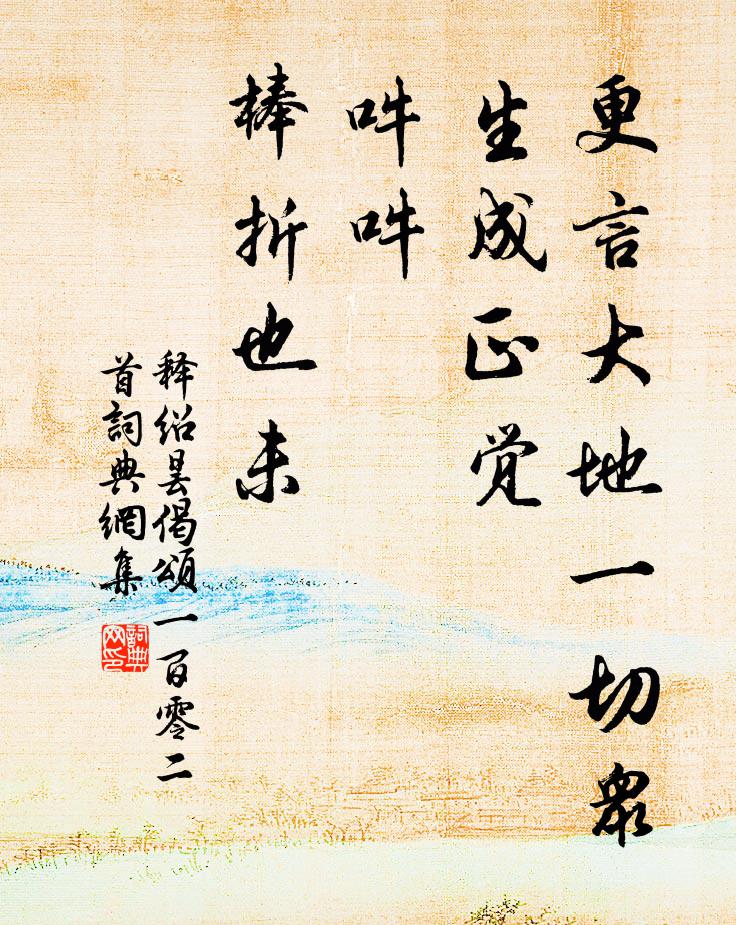 更言大地一切衆
生成正觉
吽吽
棒折也未
释绍昙偈頌一百零二
首詞典網集
詞典網印